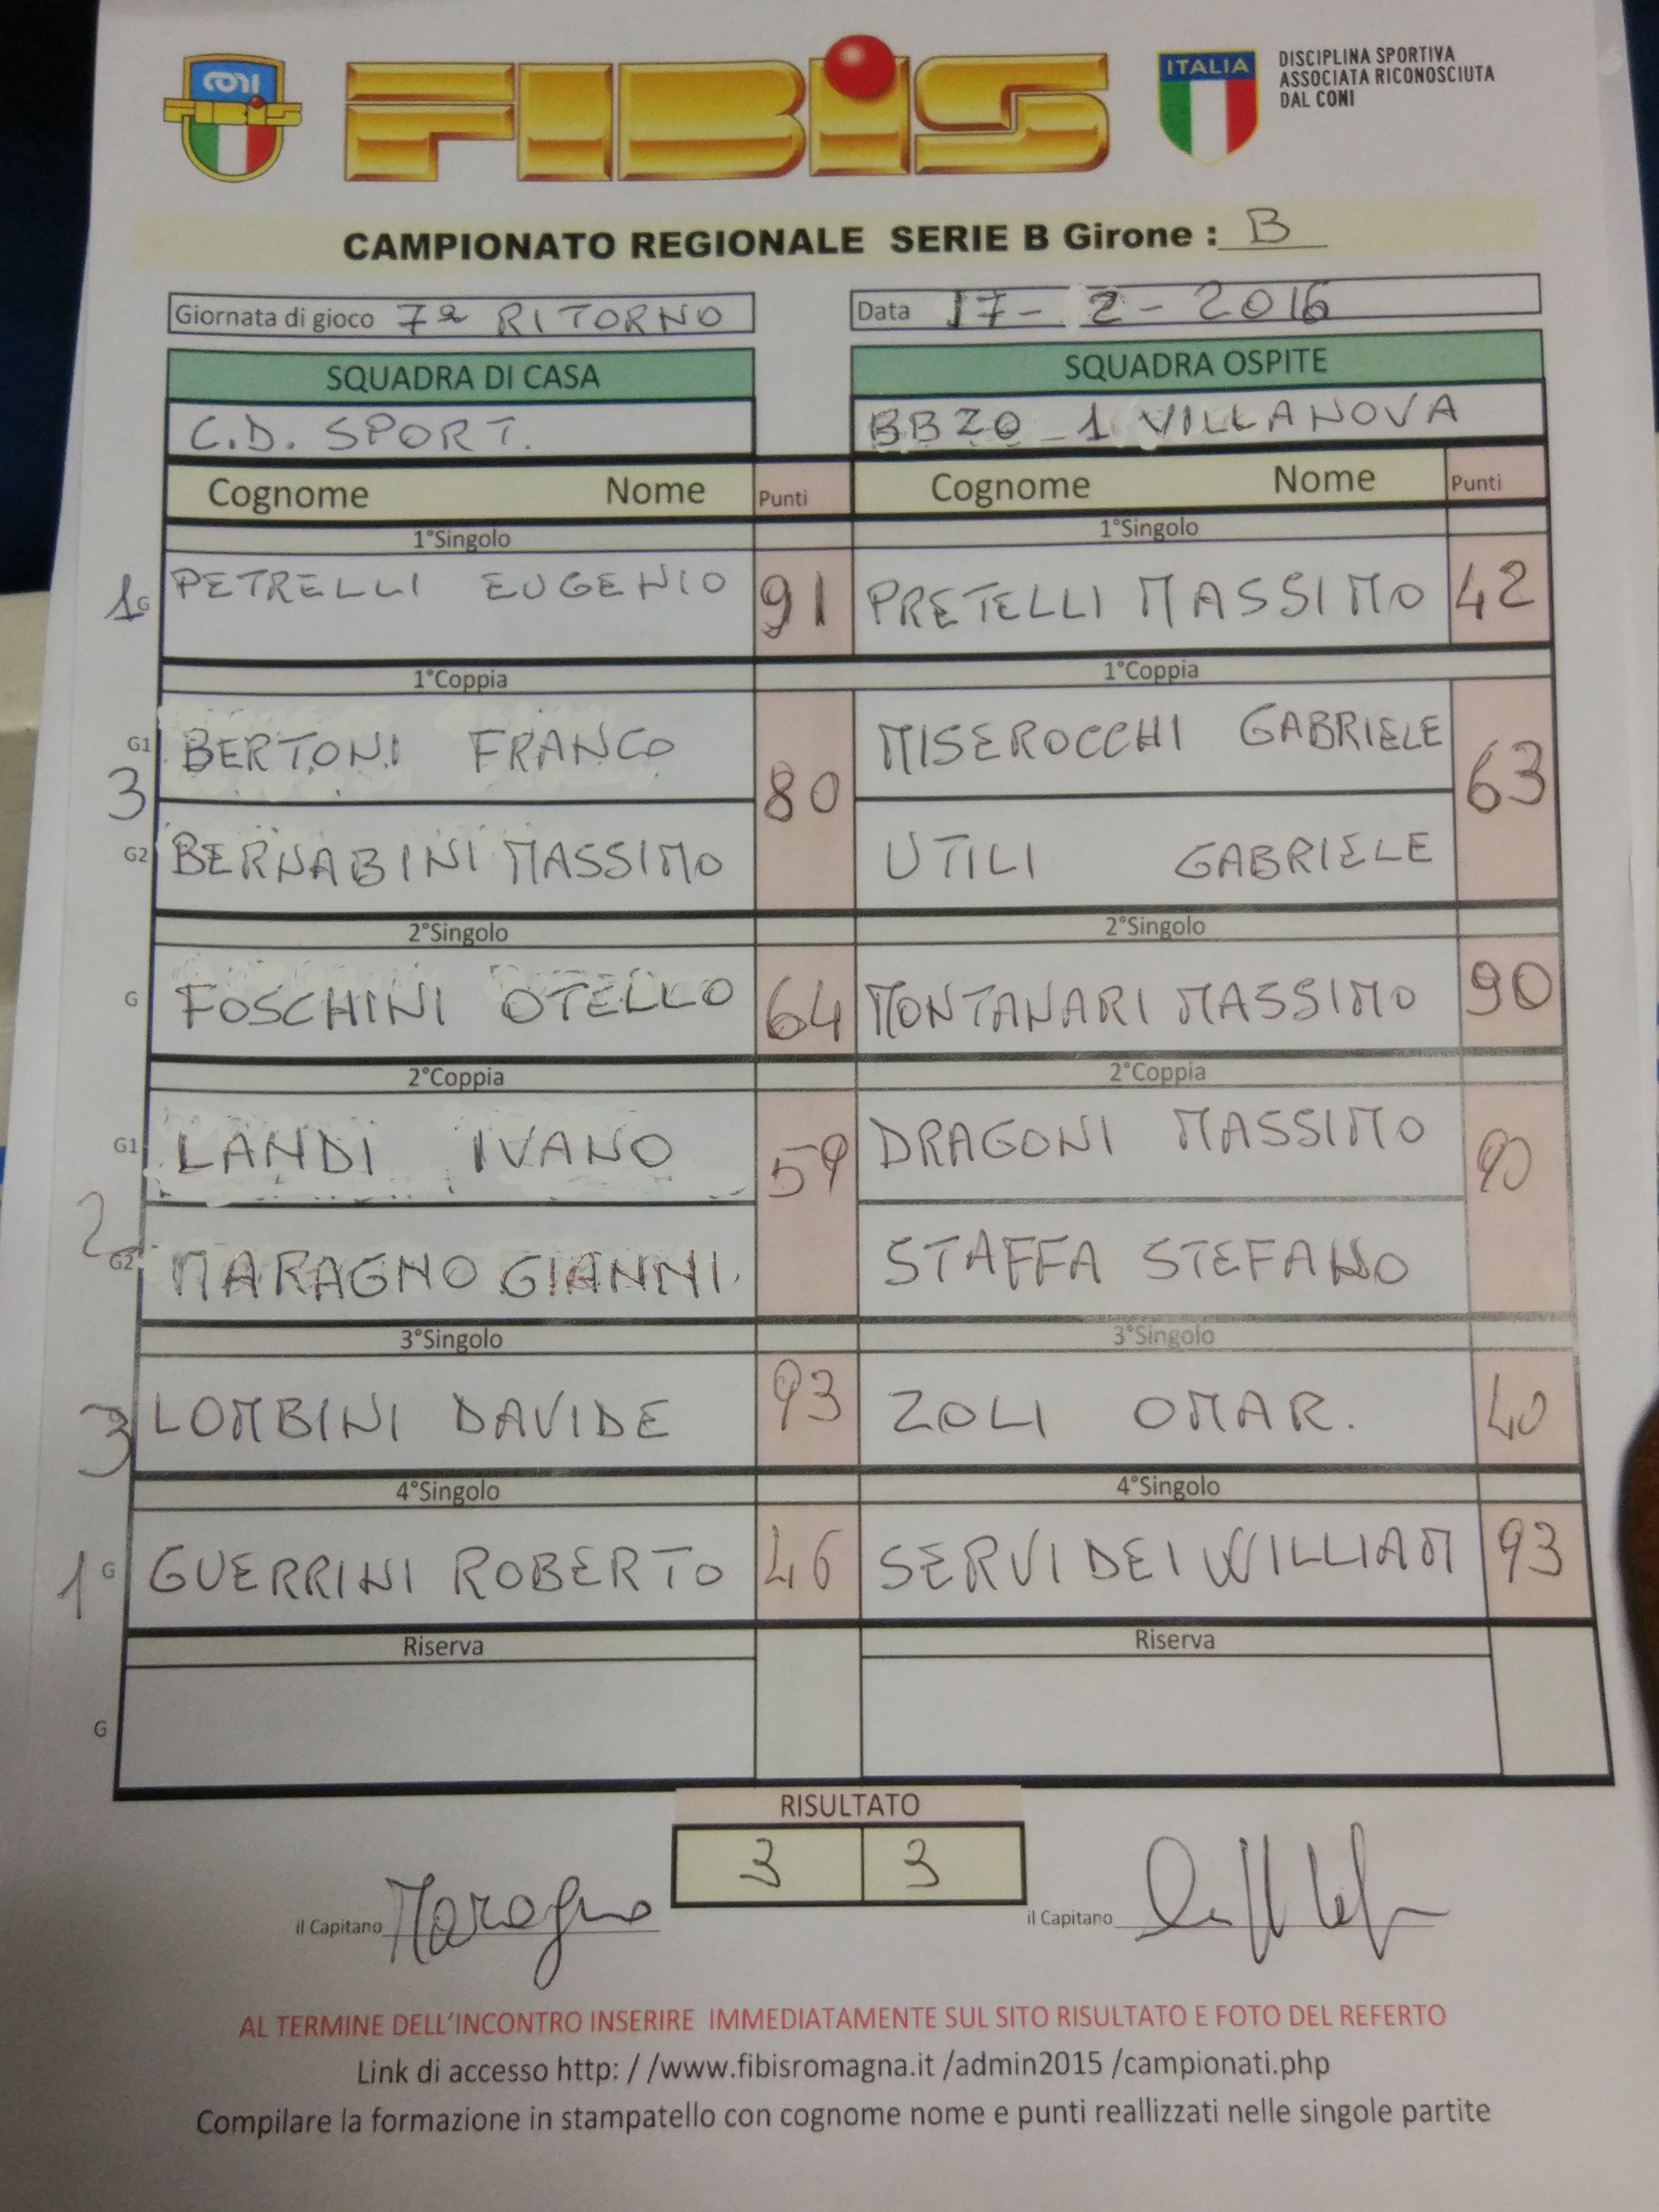 CONI
FIBIS
FIBiS
ITALIA
DISCIPLINA SPORTIVA
ASSOCIATA RICONOSCIUTA
DAL CONI
CAMPIONATO REGIONALE SERIE B Girone : B
Giornata di gioco 7ª RITORNO Data 17-2-2016
SQUADRA DI CASA SQUADRA OSPITE
C.D. SPORT. BBZO 1 VILLANOVA
Cognome Nome Punti Cognome Nome Punti
1°Singolo 1°Singolo
1 G PETRELLI EUGENIO 91 PRETELLI MASSIMO 42
1°Coppia 1°Coppia
G1 BERTONI FRANCO MISEROCCHI GABRIELE
3 80 63
G2 BERNABINI MASSIMO UTILI GABRIELE
2°Singolo 2°Singolo
G FOSCHINI OTELLO 64 MONTANARI MASSIMO 90
2°Coppia 2°Coppia
G1 LANDI IVANO 59 DRAGONI MASSIMO 90
2
G2 MARAGNO GIANNI. STAFFA STEFANO
3°Singolo 3°Singolo
3 LOMBINI DAVIDE 93 ZOLI OMAR. 40
4°Singolo 4°Singolo
1 G GUERRINI ROBERTO 46 SERVIDEI WILLIAM 93
Riserva Riserva
G
RISULTATO
3 3
il Capitano Maragno il Capitano
AL TERMINE DELL'INCONTRO INSERIRE IMMEDIATAMENTE SUL SITO RISULTATO E FOTO DEL REFERTO
Link di accesso http: / /www.fibisromagna.it /admin2015 /campionati.php
Compilare la formazione in stampatello con cognome nome e punti reallizzati nelle singole partite